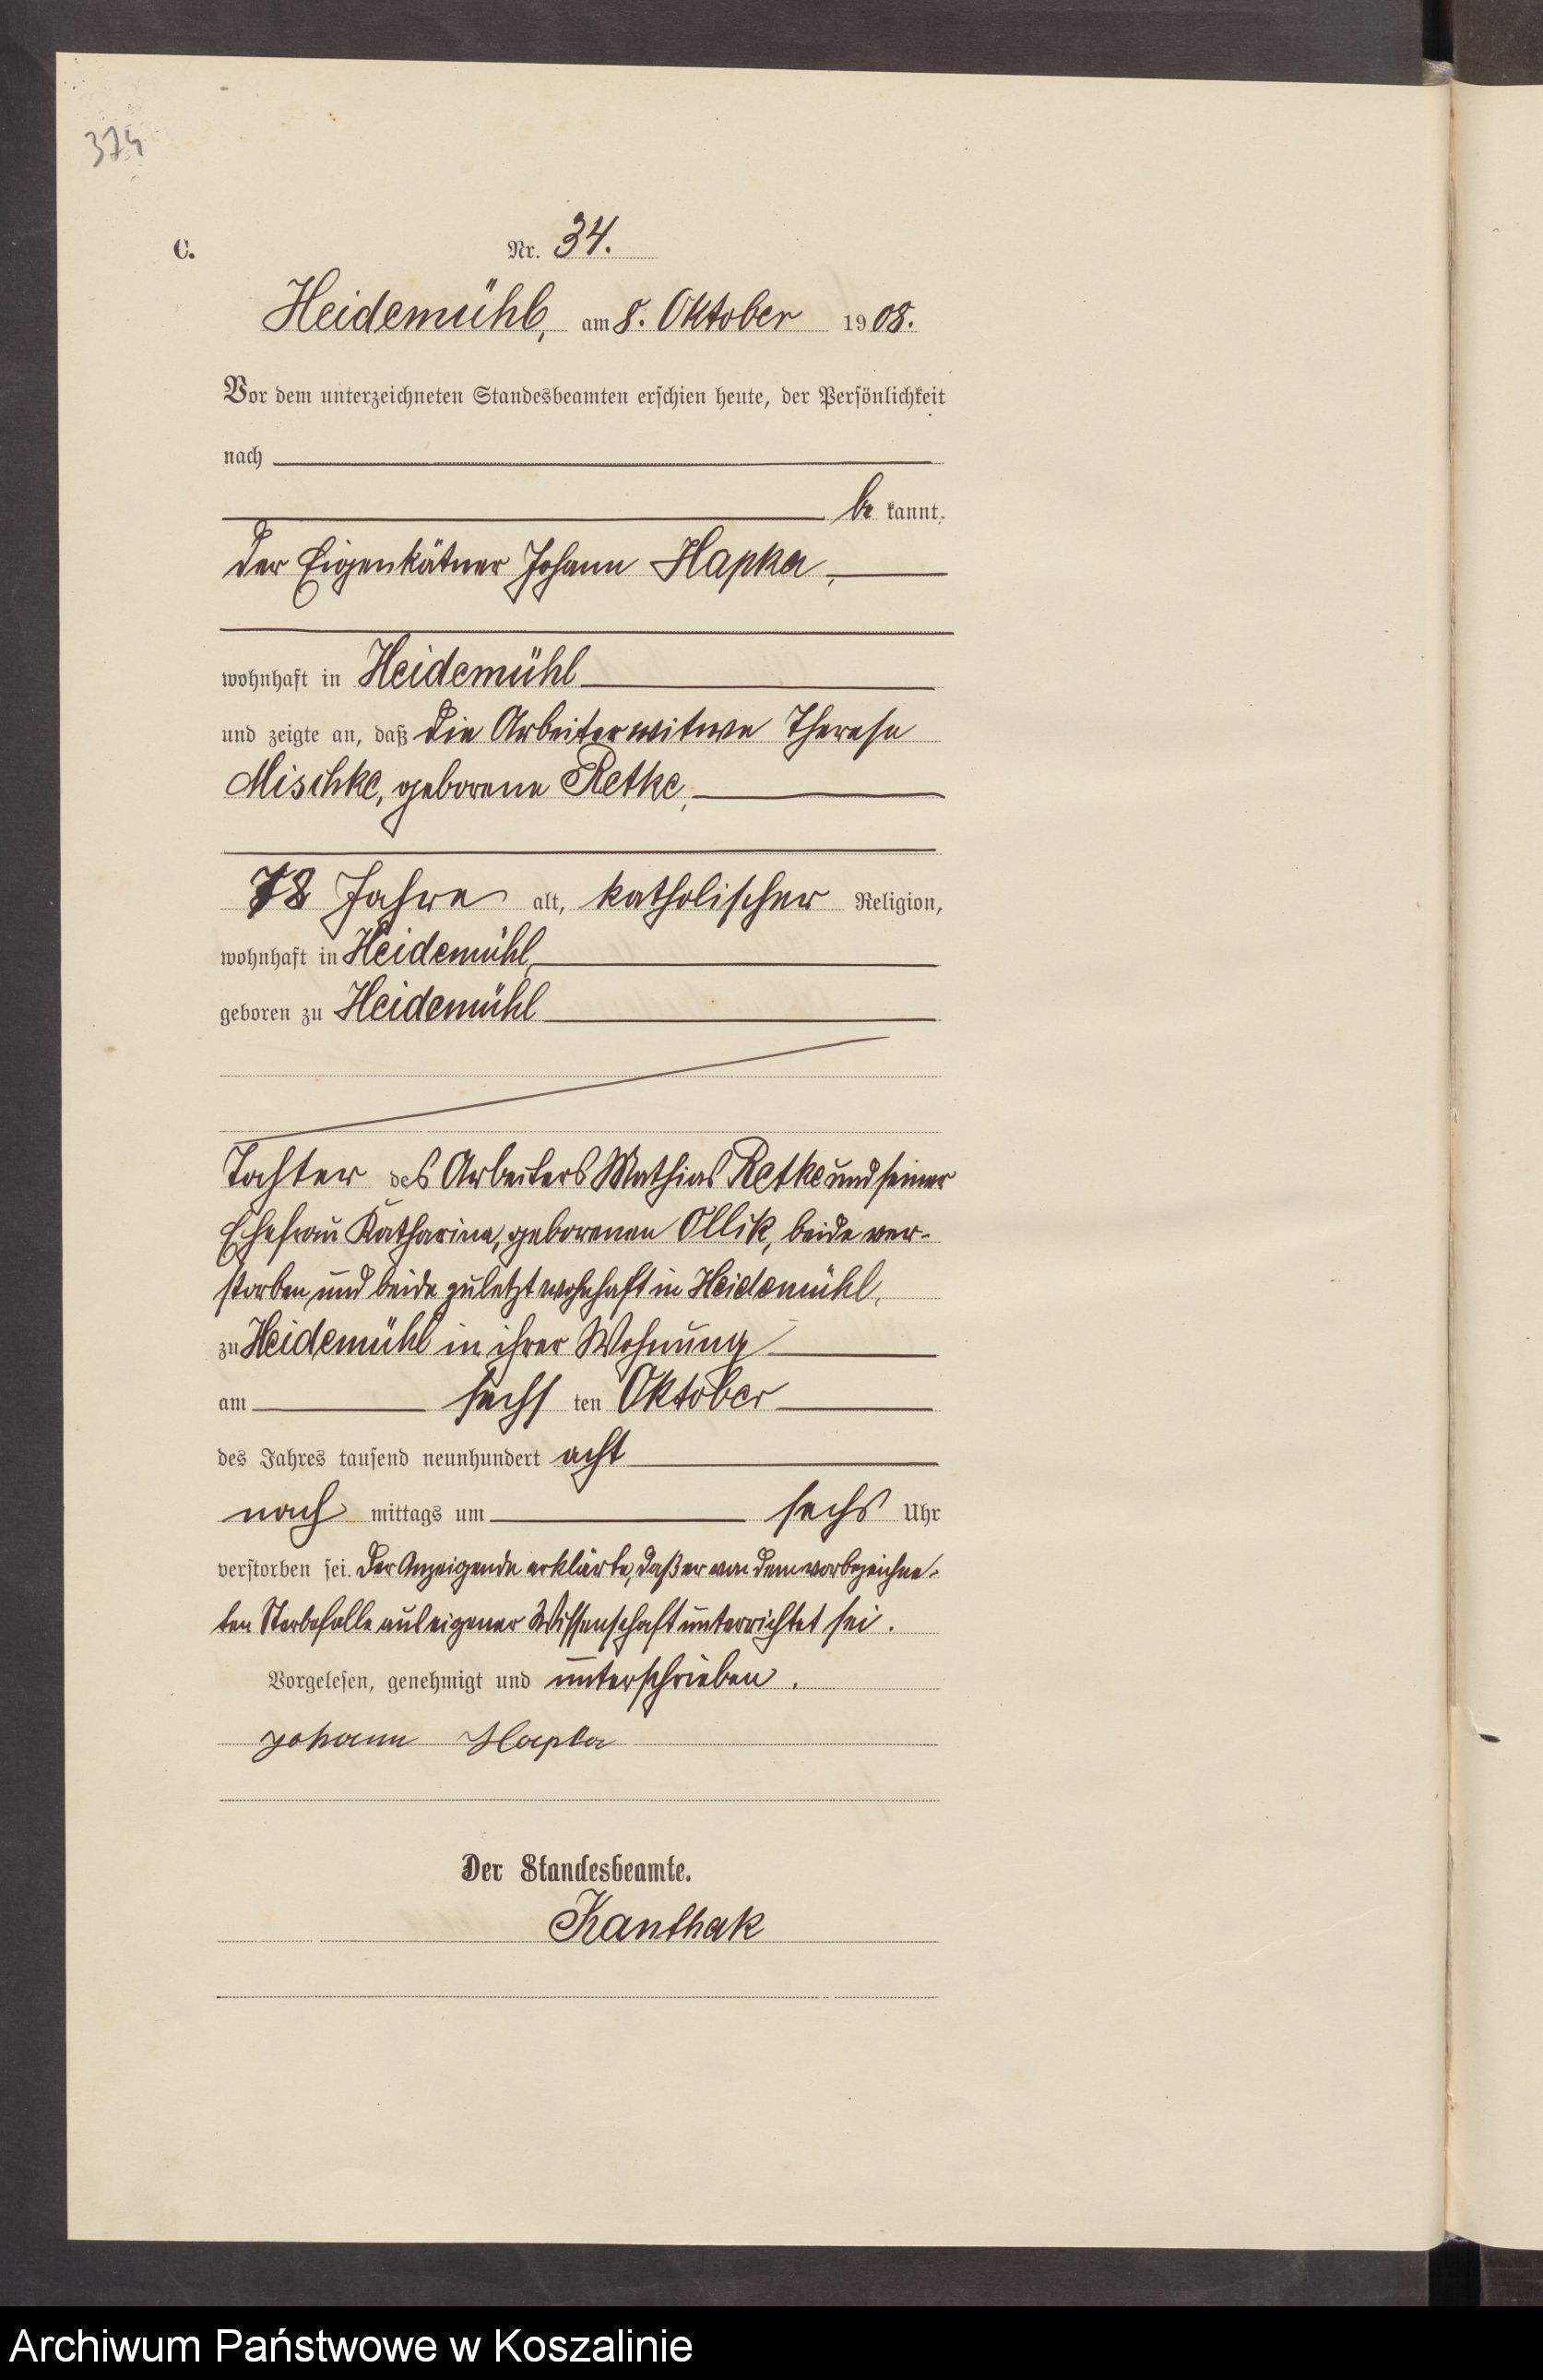 374
C.
Nr. 34.
Heidemühl, am 8. Oktober 1908.
Vor dem unterzeichneten Standesbeamten erschien heute, der Persönlichkeit
nach
be kannt,
der Eigenkätner Johann Hapka,
wohnhaft in Heidemühl
und zeigte an, daß die Arbeiterwitwe Therese
Mischke, geborene Retke,
78 Jahre alt, katholischer Religion,
wohnhaft in Heidemühl,
geboren zu Heidemühl
Tochter des Arbeiters Mathias Retke und seiner
Ehefrau Katharina, geborenen Ollik, beide ver-
storben und beide zuletzt wohnhaft in Heidemühl,
zu Heidemühl in ihrer Wohnung
am sechs ten Oktober
des Jahres tausend neunhundert acht
nach mittags um sechs Uhr
verstorben sei. Der Anzeigende erklärte, daß er von dem vorbezeichne-
ten Sterbefalle aus eigener Wissenschaft unterrichtet sei.
Vorgelesen, genehmigt und unterschrieben.
Johann Hapka
Der Standesbeamte.
Kanthak
Archiwum Państwowe w Koszalinie